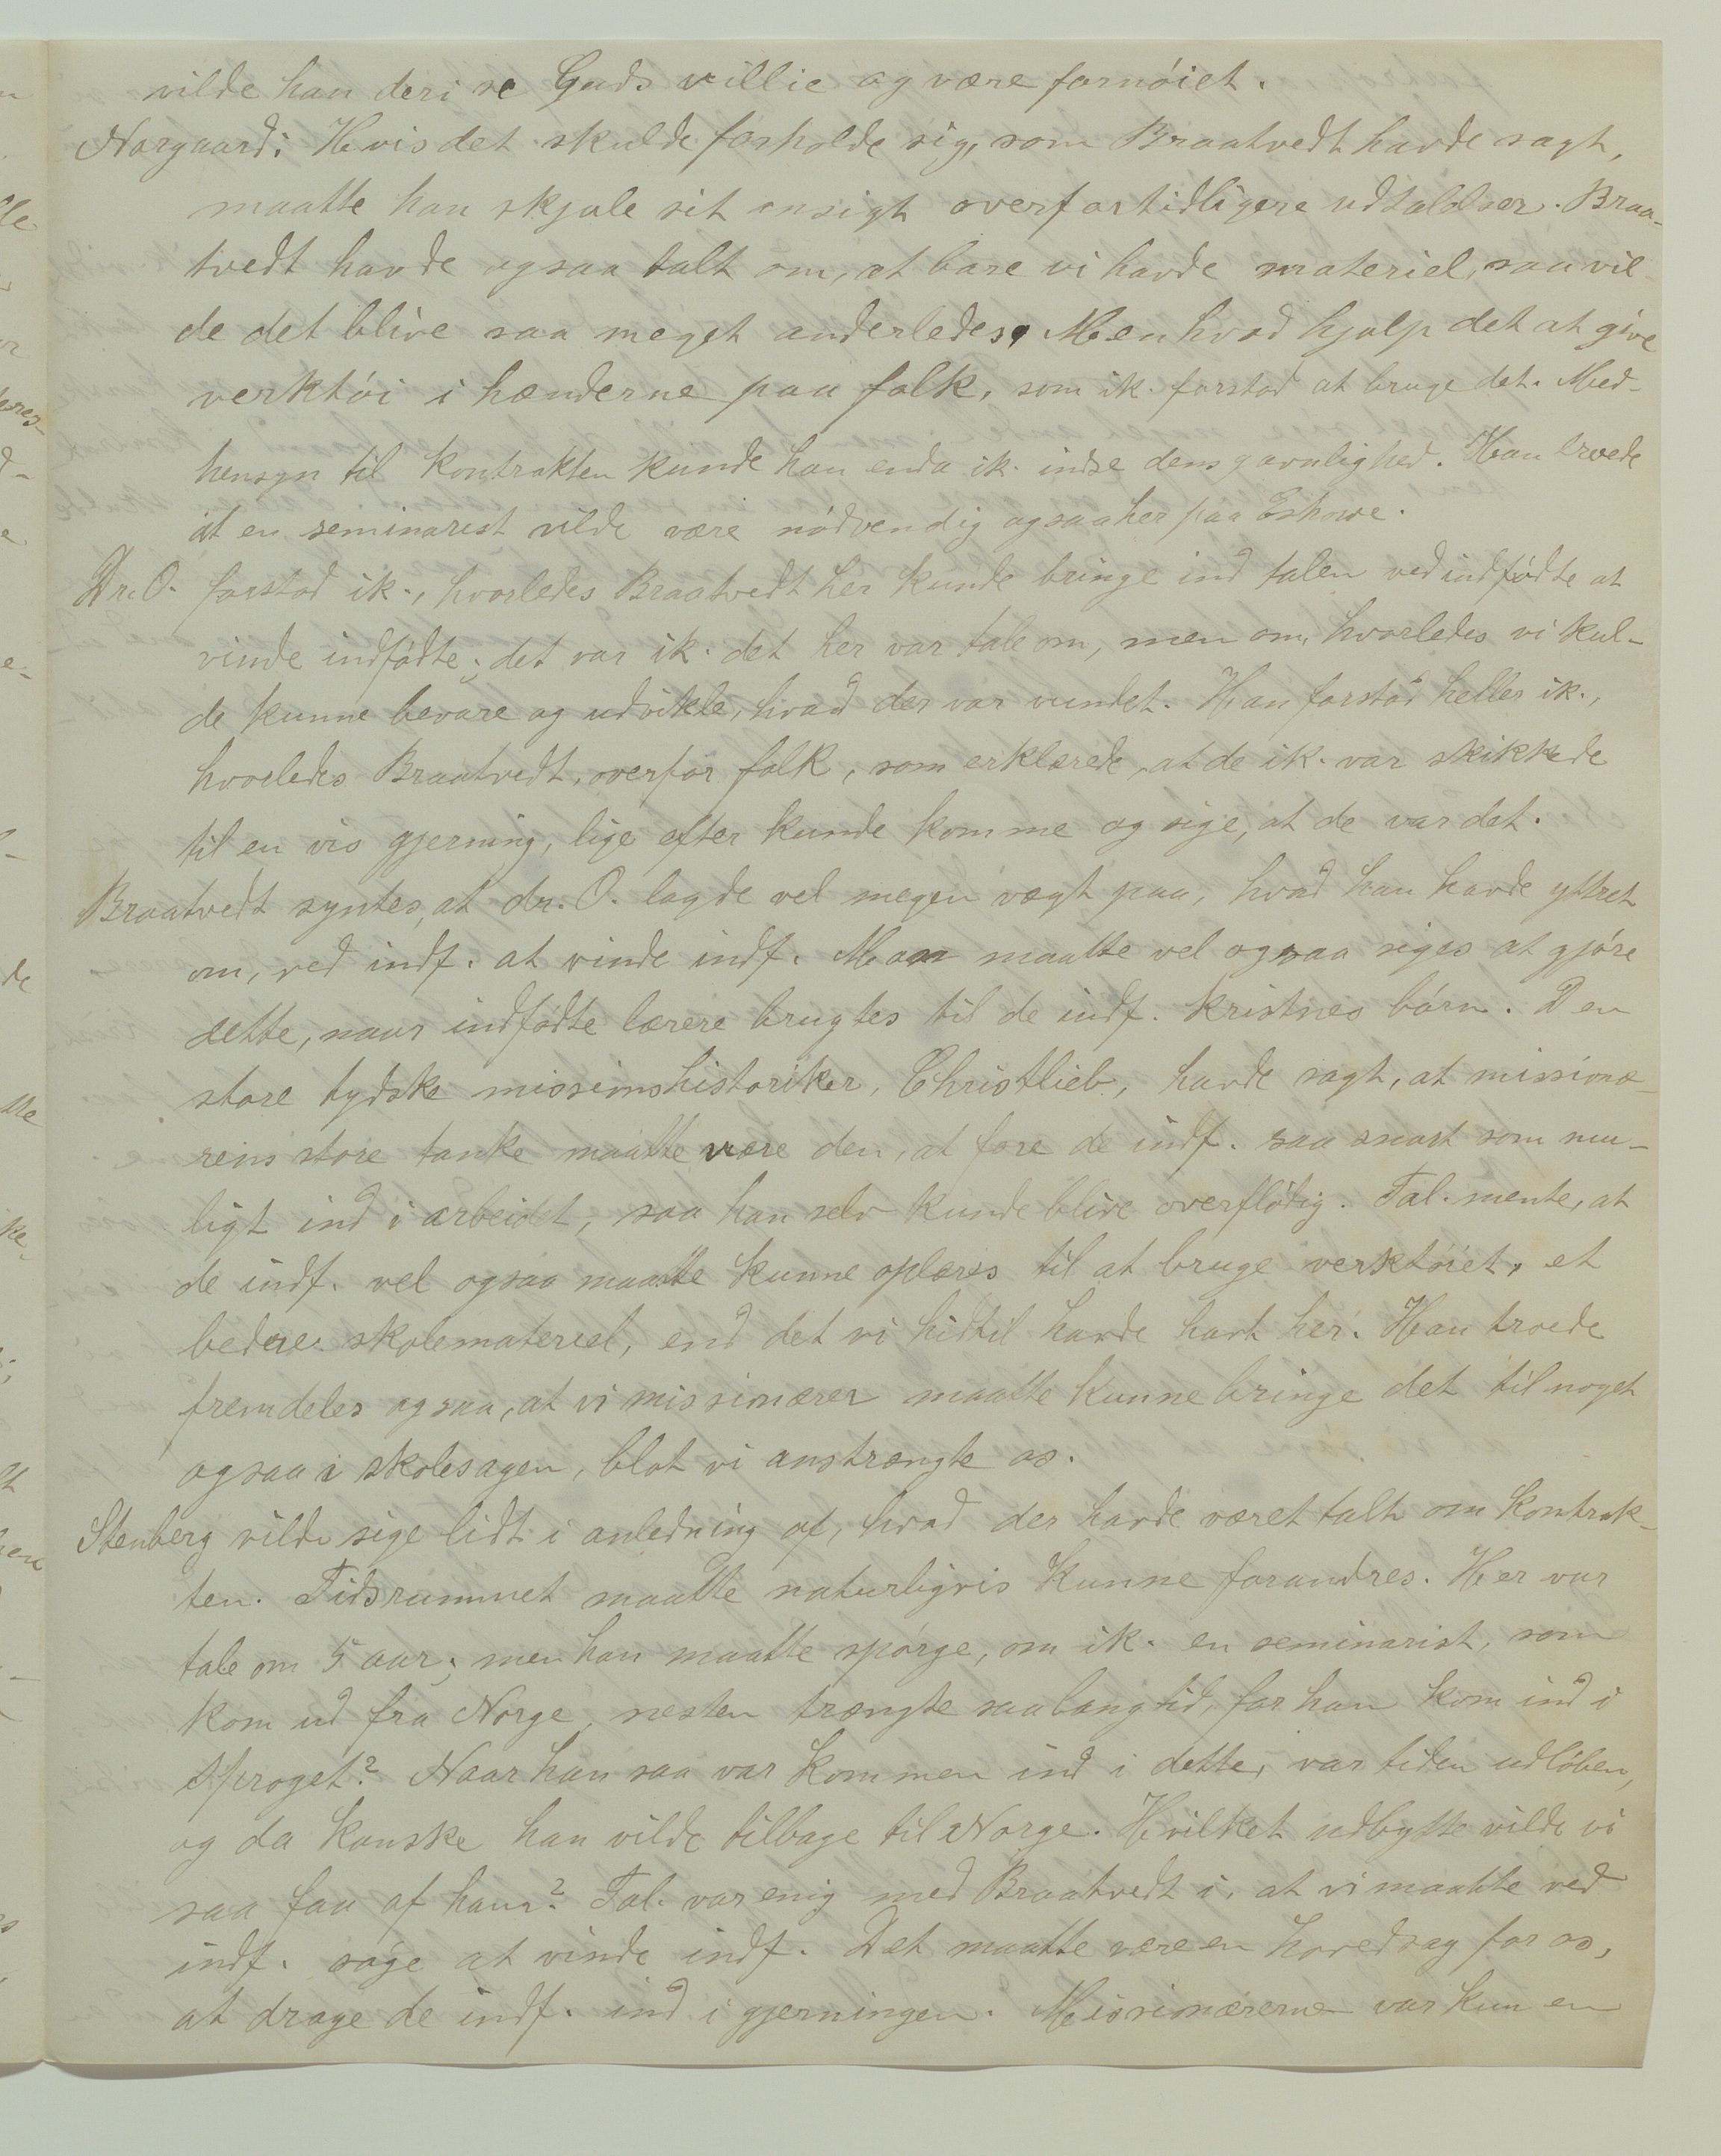 vilde han deri se Guds villie og være fornøiet.
Norgaard: Hvis det skulde forholde sig, som Braatvedt havde sagt,
maatte han skjule sit ansigt overfor tidligere udtalelser. Braa-
tvedt havde ogsaa talt om, at bare vi havde materiel, saa vil
de det blive saa meget anderledes. Men hvad hjalp det at give
verktøi i hænderne paa folk, som ik. forstod at bruge det. Med-
hensyn til kontrakten kunde han enda ik. indse dens gavnlighed. Han troede
at en seminarist vilde være nødvendig ogsaa her paa Eshowe.
Dr. O. forstod ik., hvorledes Braatvedt her kunde bringe ind talen ved indfødte at
vinde indfødte; det var ik. det her var tale om, men om, hvorledes vi kul-
de kunne bevare og udvikle, hvad der var vundet. Han forstod heller ik.,
hvorledes Braatvedt, overfor folk, som erklærede, at de ik. var skikkede
til en vis gjerning, lige efter kunde komme og sige, at de var det.
Braatvedt syntes, at dr. O. lagde vel megen vægt paa, hvad han havde yttret
om, ved indf. at vinde indf. Man maatte vel ogsaa siges at gjøre
dette, naar indfødte lærere brugtes til de indf. kristnes børn. Den
store tydske missionshistoriker, Christlieb, havde sagt, at missionæ-
rens store tanke maatte være den, at føre de indf. saa snart som mu-
ligt ind i arbeidet, saa han selv kunde blive overflødig. Tal. mente, at
de indf. vel ogsaa maatte kunne oplæres til at bruge verktøiet, et
bedere skolemateriel, end det vi hidtil havde havt her. Han troede
fremdeles ogsaa, at vi missionærer maatte kunne bringe det til noget
ogsaa i skolesagen, blot vi anstrængte os.
Stenberg vilde sige lidt i anledning af, hvad der havde været talt om kontrak-
ten. Tidsrummet maatte naturligvis kunne forandres. Her var
tale om 5 aar; men han maatte spørge, om ik. en seminarist, som
kom ud fra Norge, nesten trængte saa lang tid, før han kom ind i
sproget? Naar han saa var kommen ind i dette, var tiden udløben,
og da kanske han vilde tilbage til Norge. Hvilket udbytte vilde vi
saa faa af ham? Tal. var enig med Braatvedt i, at vi maatte ved
indf. søge at vinde indf. Det maatte være en hovedsag for os,
at drage de indf. ind i gjerningen. Missionærerne var kun en